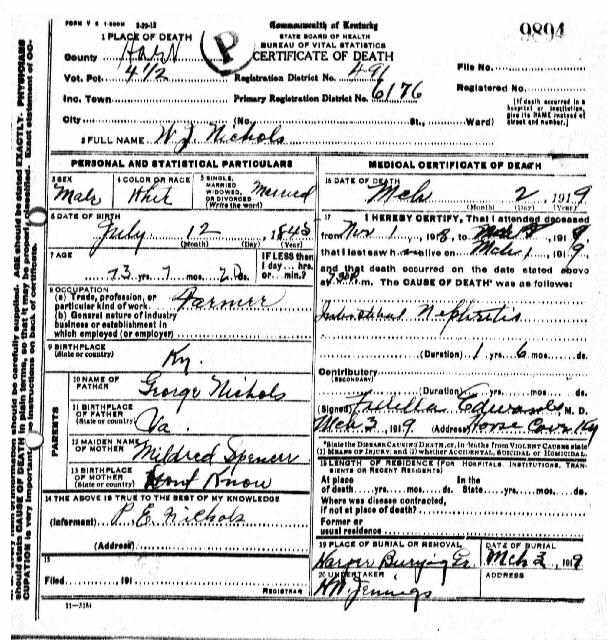 FORM V S 1-200M 3-29-18
Commonwealth of Kentucky
9894
STATE BOARD OF HEALTH
BUREAU OF VITAL STATISTICS
CERTIFICATE OF DEATH
P
1 PLACE OF DEATH
County Hart
Vot. Pct 4 1/2
Registration District No. 491
File No.
Inc. Town
Primary Registration District No. 6176
Registered No.
City (No. St., Ward)
[If death occurred in a hospital or institution, give its NAME instead of street and number.]
2 FULL NAME W. J. Nichols
PERSONAL AND STATISTICAL PARTICULARS
3 SEX Male
4 COLOR OR RACE Whit
5 SINGLE, MARRIED, WIDOWED, OR DIVORCED (Write the word) Married
6 DATE OF BIRTH
July 12, 1845
(Month) (Day) (Year)
7 AGE
73 yrs. 7 mos. ds.
IF LESS than 1 day... hrs. or... min.?
8 OCCUPATION
(a) Trade, profession, or particular kind of work Farmer
(b) General nature of industry business or establishment in which employed (or employer)
9 BIRTHPLACE
(State or country) Ky.
PARENTS
10 NAME OF FATHER George Nichols
11 BIRTHPLACE OF FATHER
(State or country) Va.
12 MAIDEN NAME OF MOTHER Mildred Spencer
13 BIRTHPLACE OF MOTHER
(State or country) Dont Know
14 THE ABOVE IS TRUE TO THE BEST OF MY KNOWLEDGE
(Informant) P. E. Nichols
(Address)
15
Filed 191
REGISTRAR
11-3184
MEDICAL CERTIFICATE OF DEATH
16 DATE OF DEATH
Mch 2, 1919
(Month) (Day) (Year)
17 I HEREBY CERTIFY, That I attended deceased
from Nov 1, 1918, to Mch 1919,
that I last saw alive on Mch 1 1919,
and that death occurred on the date stated above
at m. The CAUSE OF DEATH* was as follows:
Interstitial Nephritis
(Duration) 1 yrs. 6 mos. ds.
Contributory
(SECONDARY)
(Duration) yrs. mos. ds.
(Signed) Edwards M. D.
Mch 3, 1919 (Address) Horse Cave Ky
*State the DISEASE CAUSING DEATH, or, in deaths from VIOLENT CAUSES state (1) MEANS OF INJURY; and (2) whether ACCIDENTAL, SUICIDAL or HOMICIDAL.
18 LENGTH OF RESIDENCE (FOR HOSPITALS, INSTITUTIONS, TRANSIENTS OR RECENT RESIDENTS)
At place of death yrs. mos. ds. In the State yrs. mos. ds.
Where was disease contracted, if not at place of death?
Former or usual residence
19 PLACE OF BURIAL OR REMOVAL
Harper Burying Gr.
DATE OF BURIAL
Mch 3, 1919
20 UNDERTAKER
HW Jennings
ADDRESS